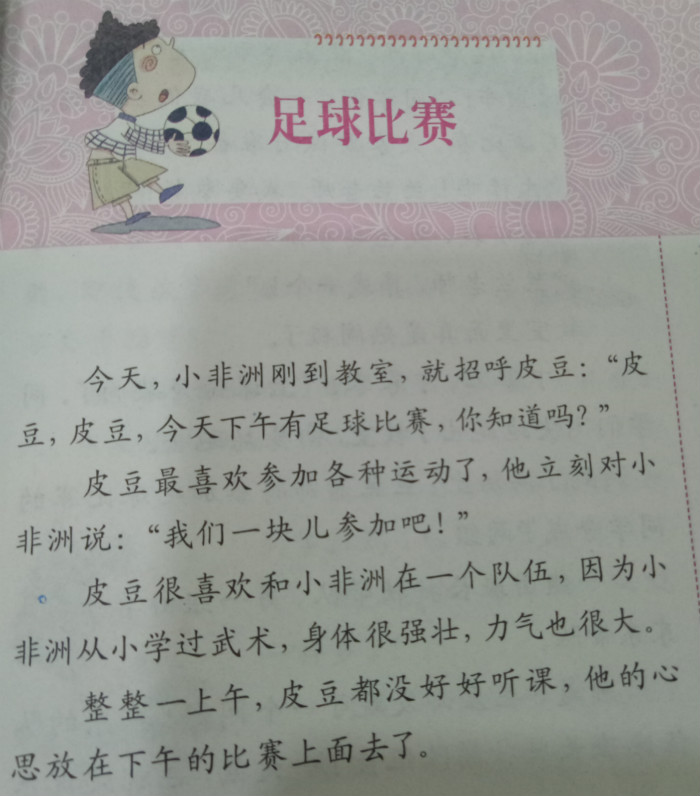 足球比赛
今天，小非洲刚到教室，就招呼皮豆：“皮
豆，皮豆，今天下午有足球比赛，你知道吗？”
皮豆最喜欢参加各种运动了，他立刻对小
非洲说：“我们一块儿参加吧！”
皮豆很喜欢和小非洲在一个队伍，因为小
非洲从小学过武术，身体很强壮，力气也很大。
整整一上午，皮豆都没好好听课，他的心
思放在下午的比赛上面去了。